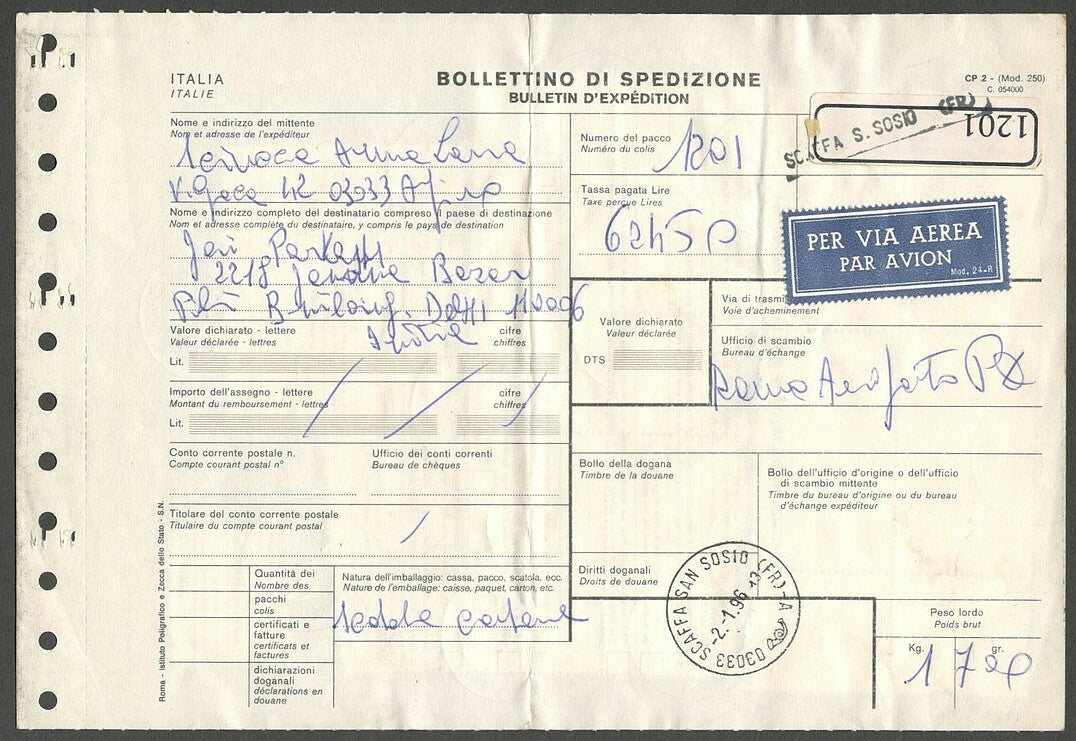 ITALIA
ITALIE
BOLLETTINO DI SPEDIZIONE
BULLETIN D'EXPÉDITION
CP 2 - (Mod. 250)
C. 054000
Nome e indirizzo del mittente
Nom et adresse de l'expéditeur
Anna
V. 42 03033
Nome e indirizzo completo del destinatario compreso il paese di destinazione
Nom et adresse complète du destinataire, y compris le pays de destination
2218
Delhi 110006
Valore dichiarato - lettere
Valeur déclarée - lettres
cifre
chiffres
Lit.
Importo dell'assegno - lettere
Montant du remboursement - lettres
cifre
chiffres
Lit.
Conto corrente postale n.
Compte courant postal n°
Ufficio dei conti correnti
Bureau de chèques
Titolare del conto corrente postale
Titulaire du compte courant postal
Quantità dei
Nombre des
pacchi
colis
certificati e
fatture
certificats et
factures
dichiarazioni
doganali
déclarations en
douane
Natura dell'imballaggio: cassa, pacco, scatola, ecc.
Nature de l'emballage: caisse, paquet, carton, etc.
Roma - Istituto Poligrafico e Zecca dello Stato - S.N.
Numero del pacco
Numéro du colis
1201
SCAFFA S. SOSIO (FR)
1201
Tassa pagata Lire
Taxe perçue Lires
62450
PER VIA AEREA
PAR AVION
Mod. 24-R
Valore dichiarato
Valeur déclarée
DTS
Via di trasmi
Voie d'acheminement
Ufficio di scambio
Bureau d'échange
Roma Aeroporto
Bollo della dogana
Timbre de la douane
Bollo dell'ufficio d'origine o dell'ufficio
di scambio mittente
Timbre du bureau d'origine ou du bureau
d'échange expéditeur
Diritti doganali
Droits de douane
03033 SCAFFA SAN SOSIO (FR) - A
-2.-1.96 13
Peso lordo
Poids brut
Kg.
gr.
1 720